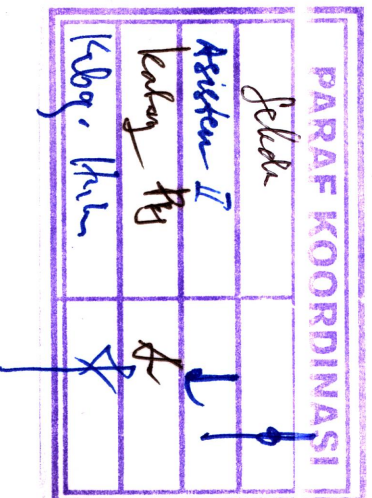 PARAF KOORDINASI
Sekda
Asisten II
Kabag
Kabag. Huk